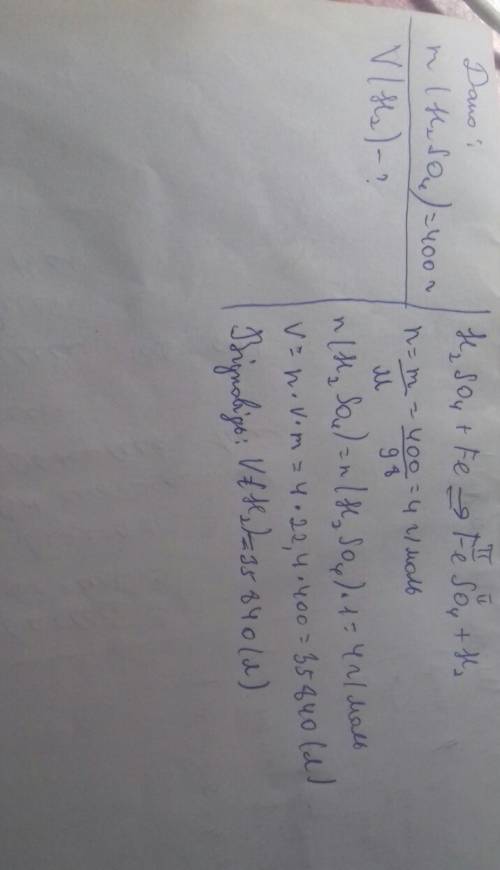 Дано:
n(H₂SO₄)=400 г
V(H₂)-?
H₂SO₄ + Fe → FeSO₄ + H₂
II II
n = m/M = 400/98 = 4 г/моль
n(H₂SO₄) = n(H₂SO₄)·1 = 4 г/моль
V = n·v·m = 4·22,4·400 = 35840 (л)
Відповідь: V(H₂)=35840(л)